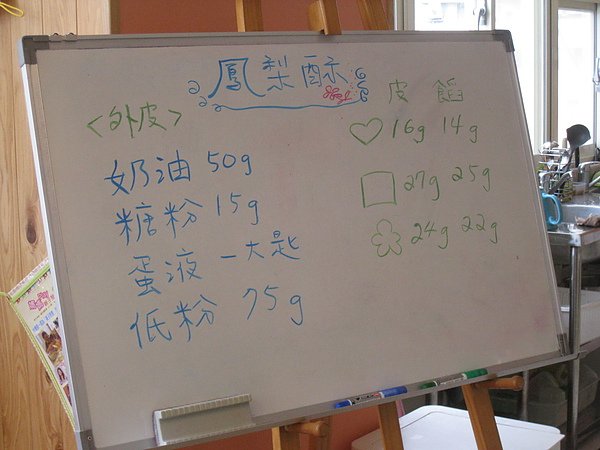 鳳梨酥
<外皮>
奶油 50g
糖粉 15g
蛋液 一大匙
低粉 75g
皮 餡
16g 14g
27g 25g
24g 22g